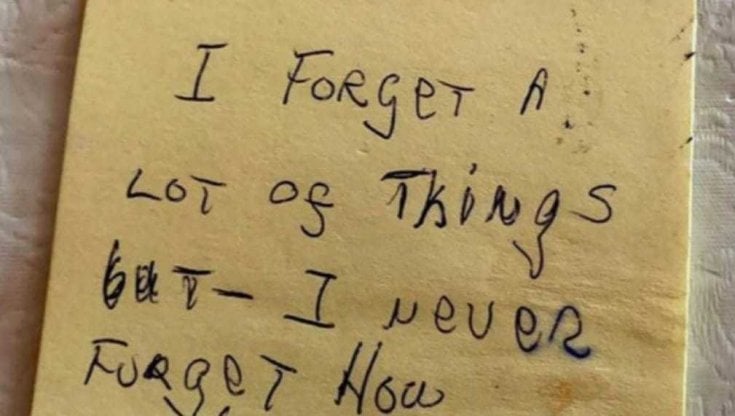 I FORGET A
LOT OF THINGS
BUT - I NEVER
FORGET HOW